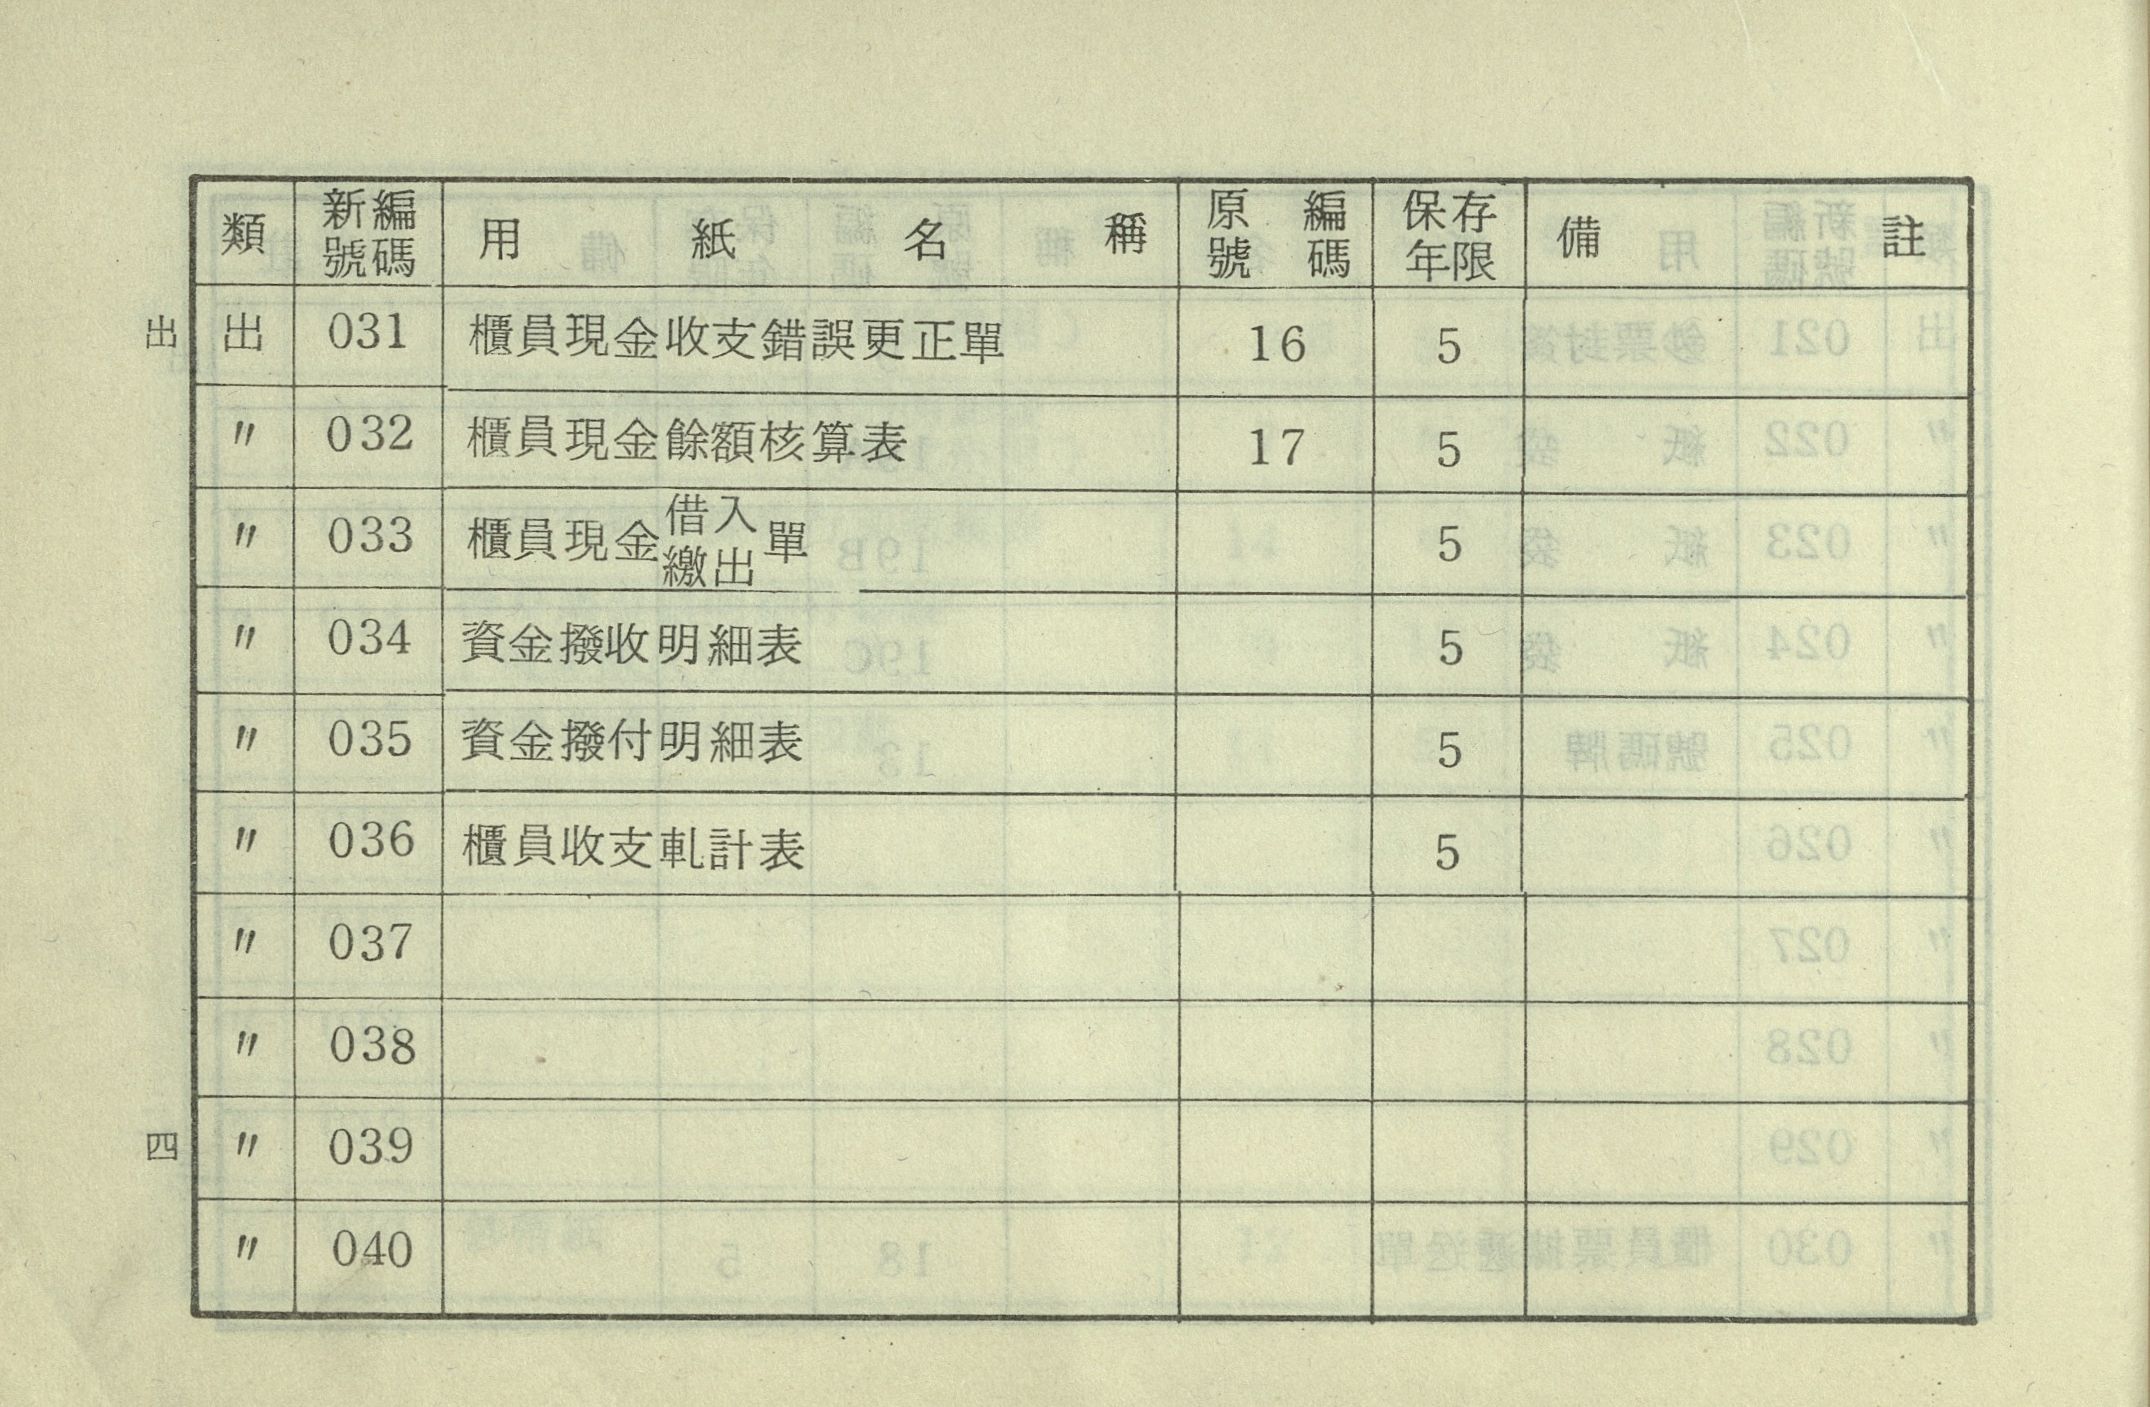 類 新編號碼 用紙名稱 原編號碼 保存年限 備註
出 出 031 櫃員現金收支錯誤更正單 16 5
〃 032 櫃員現金餘額核算表 17 5
〃 033 櫃員現金借入繳出單 5
〃 034 資金撥收明細表 5
〃 035 資金撥付明細表 5
〃 036 櫃員收支軋計表 5
〃 037
〃 038
四 〃 039
〃 040